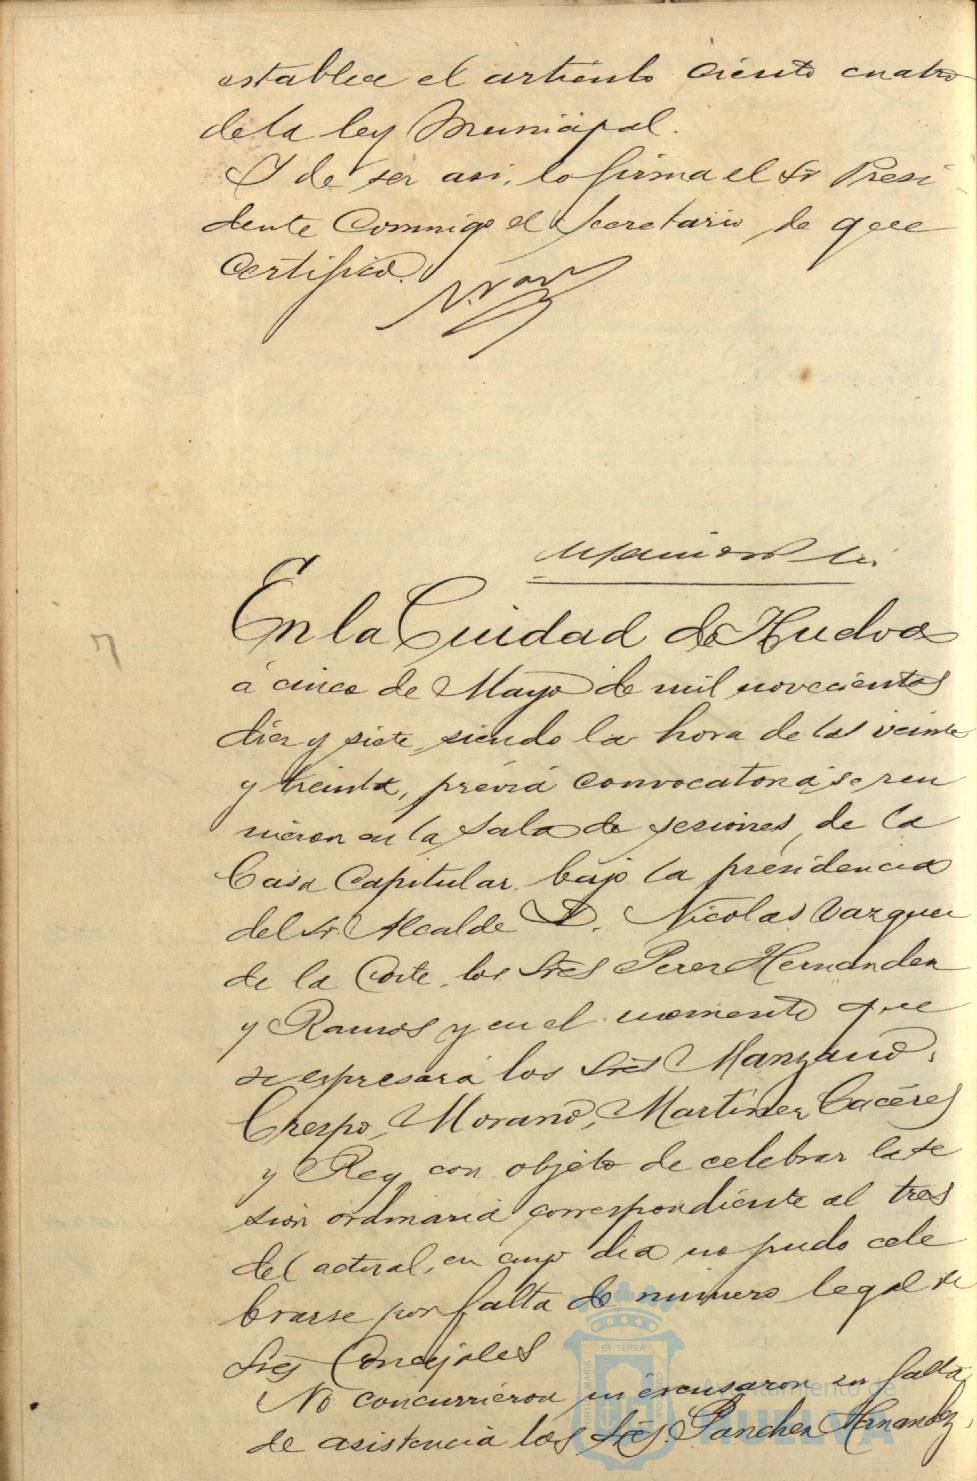 establece el articulo ciento cuatro
de la ley Municipal.
Y de ser asi, lo firma el Sr Presi
dente Conmigo el Secretario de que
Certifico.
En la Ciudad de Huelva
á cinco de Mayo de mil novecientos
diez y siete, siendo la hora de las veinte
y treinta, prévia convocatoria, se reu
nieron en la Sala de sesiones, de la
Casa Capitular bajo la presidencia
del Sr. Alcalde D. Nicolas Vazquez
de la Corte, los Sres Perez Hernandez
y Ramos y en el momento que
se espresará los Sres Manzano,
Crespo, Morano, Martinez Cacéres
y Rey con objeto de celebrar la se
sion ordinaria correspondiente al tres
del actual, en cuyo dia no pudo cele
brarse por falta de número legal de
Sres Concejales
No concurrieron ni éxcusaron su falta
de asistencia los Sres. Sanchez Hernandez,
Ayuntamiento de
HUELVA